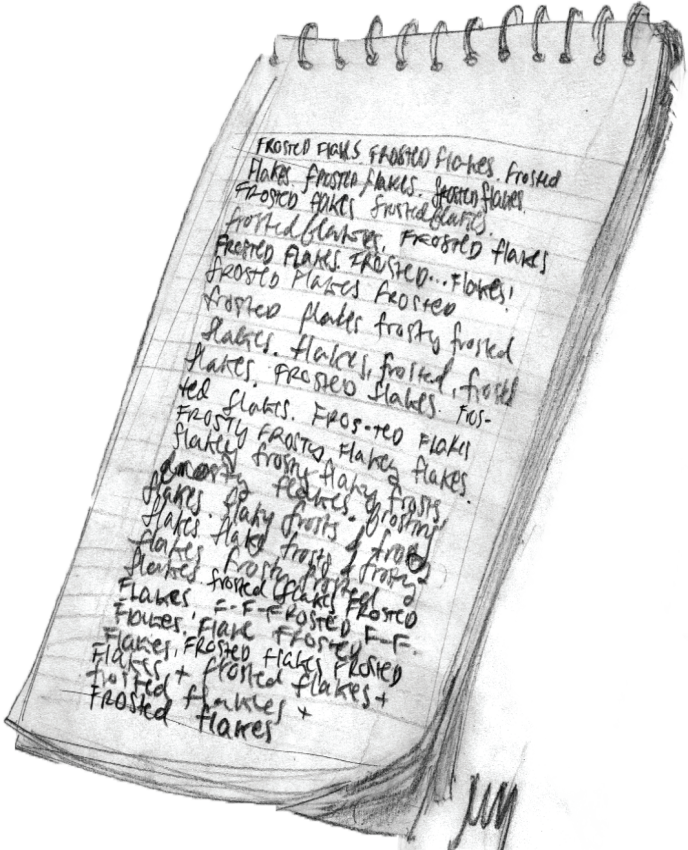 FROSTED FLAKES. FROSTED flakes. frosted
flakes. frosted flakes. frosted flakes.
FROSTED flakes frosted flakes.
frosted flakes, FROSTED flakes
FROSTED FLAKES. FROSTED... FLAKES!
frosted FLAKES FROSTED
frosted flakes frosty frosted
flakes. flakes, frosted, frosted
flakes. FROSTED flakes. Fros-
ted flakes. FROS-TED FLAKES
FROSTY FROSTY, FLAKEY flakes.
flakey frosty flaky frosts,
flakes.
flakes flaky frosts &
flakes flaky frosty & frosty
flakes frosty frosted
flakes frosted flakes FROSTED
FLAKES. F-F-FROSTED F-F-
FLAKES. FLAKE FROSTED
FLAKES, FROSTED FLAKES FROSTED
FLAKES, + frosted flakes +
frosted flakies +
FROSTED flakes